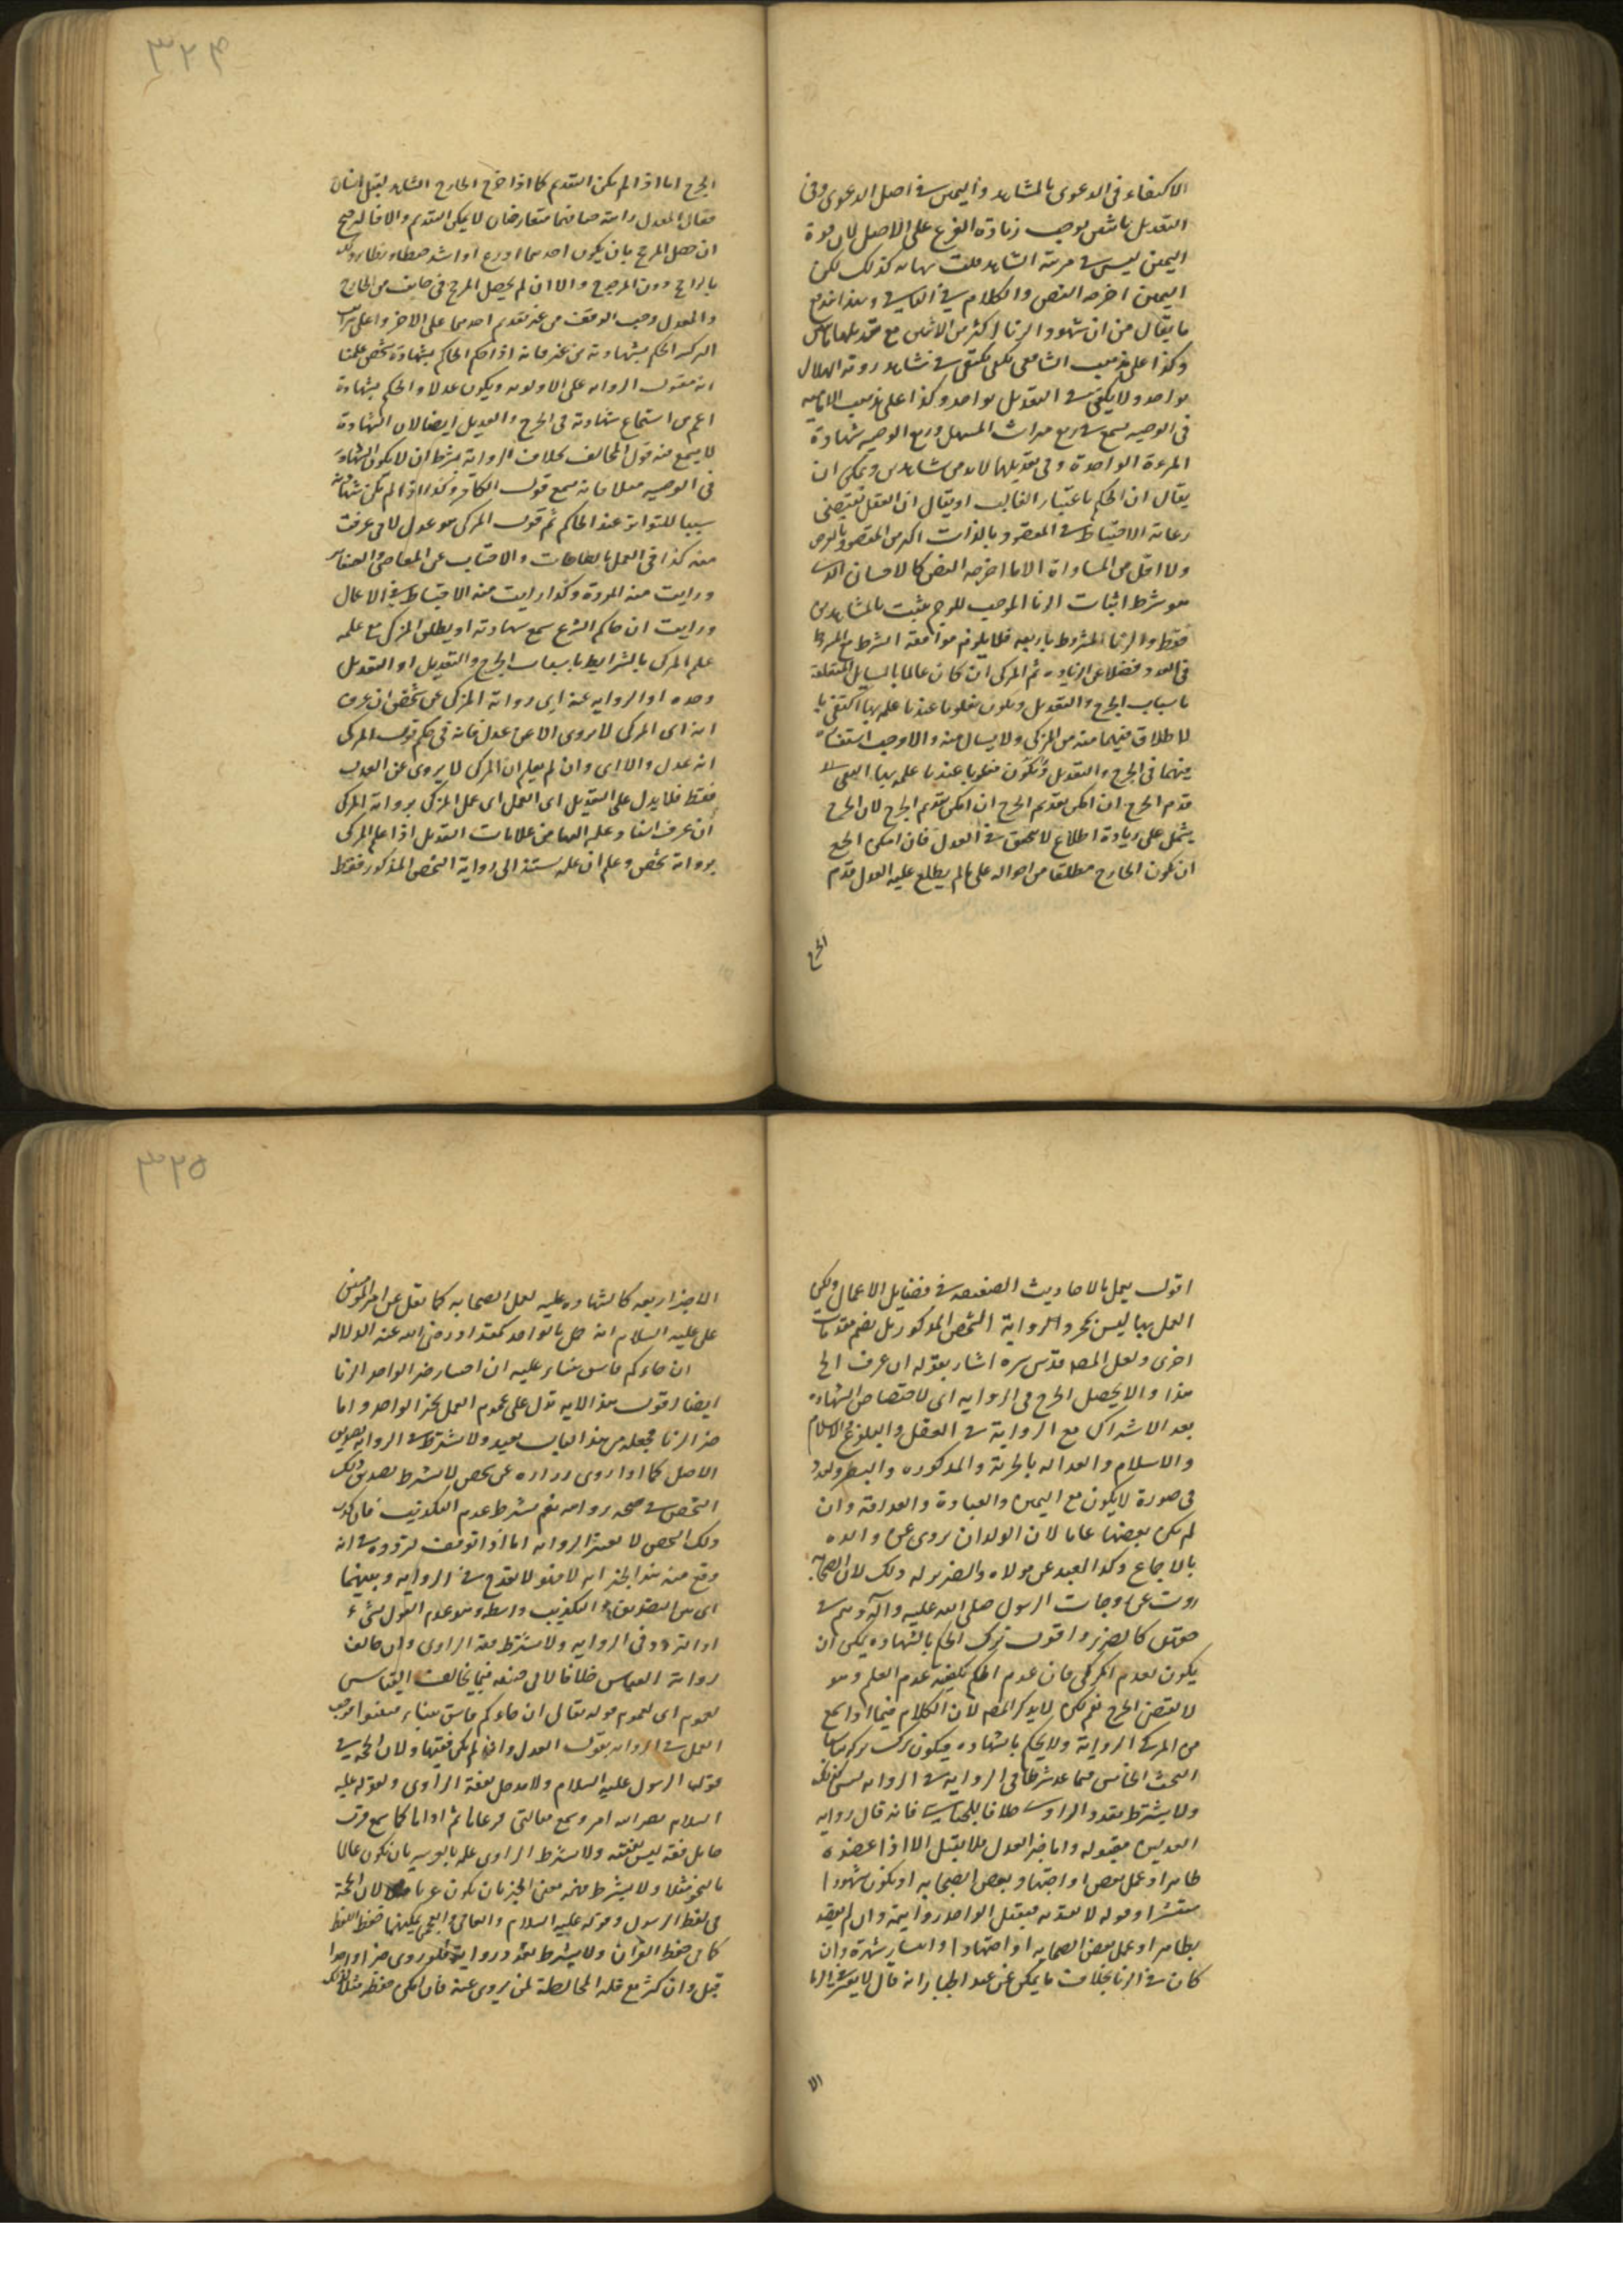 الاكتفاء فى الدعوى بالشاهد واليمين فى اصل الدعوى وفى
التعديل باثنين يوجب زيادة الفرع على الاصل لان قوة
اليمين ليس فى مرتبة الشاهد قلت كذلك لكن
اليمين اخرجه النص والكلام فى الباقى وبهذا اندفع
ما يقال من ان شهود الزنا اكثر من الاثنين مع
وكذا على مذهب الشافعى يكتفى فى شاهد رؤية الهلال
بواحد ولا يكتفى فى التعديل بواحد وكذا على مذهب الامامية
فى الوصية يسمع فى ربع ميراث المستهل وربع الوصية شهادة
المرءة الواحدة وفى تعديلها لابد من شاهدين ويمكن ان
يقال ان الحكم باعتبار الغالب او يقال ان العقل يقتضى
رعاية الاحتياط فى المقصود بالذات اكثر من المقصود بالعرض
ولا اقل من المساواة الا ما اخرجه النص كالاحسان الذى
هو شرط اثبات الزنا الموجب للرجم يثبت بالشاهدين
فقط والزنا المشروط باربعة فلا يلزم موافقة الشرط مع المشروط
فى العدد فضلا عن الزيادة ثم المزكى ان كان عالما بالمسايل المتعلقة
باسباب الجرح والتعديل ويكون معلوما عندنا علمه بها اكتفى با
لاطلاق فيهما منه من المزكى ولا يسال منه والا وجب استفساره
منهما فى الجرح والتعديل ويكون معلوما عندنا علمه بها
قدم الجرح ان امكن تقديم الجرح ان امكن تقديم الجرح لان الجرح
يشمل على زيادة اطلاع لا تتحقق فى العدل فان امكن الجمع
ان يكون الجارح مطلعا من احواله على ما لم يطلع عليه العدل قدم
الجرح
٣٢٤
الجرح اما اذا لم يكن التقديم كما اذا جرح الجارح الشاهد بقتل انسان
فقال المعدل رايته حيا فهما متعارضان لا يمكن التقديم والا فالترجيح
ان حصل المرجح بان يكون احدهما اورع او اشد ضبطا
بالراجح دون المرجوح والا ان لم يحصل المرجح فى جانب من الجارح
والمعدل وجب الوقف من غير تقديم احدهما على الاخر واعلى مراتب
التزكية الحكم بشهادته من غير فانه اذا حكم الحاكم بشهادة شخص علمنا
انه مقبول الرواية على الاولوية ويكون عدلا والحكم بشهادة
اعم من استماع شهادته فى الجرح والتعديل ايضا لان الشهادة
لا يسمع منه قول المخالف بخلاف الرواية بشرط ان لا يكون الشهادة
فى الوصية مثلا فانه يسمع قول الكافر وكذا اذا لم يكن شهادته
سببا للتواتر عند الحاكم ثم قول المزكى هو عدل لانى عرفت
منه كذا فى العمل بالطاعات والاجتناب عن المعاصى والصغاير
ورايت منه المروة وكذا رايت منه الاحتياط فى الاعمال
ورايت ان حاكم الشرع سمع شهادته او يطلق المزكى مع علمه
علم المزكى بالشرايط باسباب الجرح والتعديل او التعديل
وحده او الرواية عنه اى رواية المزكى عن شخص ان عرف
انه اى المزكى لا يروى الا عن عدل فانه فى حكم قول المزكى
انه عدل والا اى وان لم يعلم ان المزكى لا يروى عن العدل
فقط فلا يدل على التعديل اى العمل اى عمل المزكى برواية المزكى
ان عرف استناد عمله اليها من علامات التعديل اذا علم المزكى
برواية شخص وعلم ان عمله مستند الى رواية الشخص المذكور فقط
اقول يعمل بالاحاديث الضعيفة فى فضايل الاعمال ولكن
العمل بها ليس بمجرد الرواية الشخص المذكور بل بضم مقدمات
اخرى ولعل المص قدس سره اشار بقوله ان عرف الخ
هذا والا يحصل الجرح فى الرواية اى لاختصاص الشهادة
بعد الاشتراك مع الرواية فى العقل والبلوغ
والاسلام والعدالة بالحرية والمذكورة والبصر والعدد
فى صورة لا يكون مع اليمين والعبادة والعداوة وان
لم يكن بعضها عاما لان الولد ان يروى عن والده
بالاجماع وكذا العبد عن مولاه والضرير له وذلك لان الصحابة
روت عن زوجات الرسول صلى الله عليه وآله وهم فى
حقهن كالضرير واقول ترك الحكم بالشهادة يمكن ان
يكون لعدم المزكى فان عدم الحكم يكفيه عدم العلم وهو
لا يقتضى الجرح نعم لكن لا يدركه المص لان الكلام فيما اذا سمع
من المزكى الرواية ولا يحكم بالشهادة فيكون ترك تركه
البحث الخامس فيما عد شرطا فى الرواية فى الرواية ليس كذلك
ولا يشترط تعدد الراوى خلافا للجبائى فانه قال رواية
العدلين مقبولة واما خبر العدل فلا يقبل الا اذا عضده
ظاهر او عمل بعض او اجتهاد بعض الصحابة او يكون مشهورا
منتشرا وقوله لا يعتد به فيقبل الواحد روايته وان لم يعضد
بظاهر او عمل بعض الصحابة او اجتهاد او انتشار شهرة وان
كان فى الزنا بخلاف ما يحكى عن عبد الجبار انه قال لا يقبل فى الزنا
الا
٣٢٥
الا خبر اربعة كالشهادة عليه لعمل الصحابة كما نقل عن امير المؤمنين
على عليه السلام انه عمل بالواحد كمقداد رضى الله عنه الدلالة
ان جاءكم فاسق بنباء عليه ان اختار خبر الواحد الزنا
ايضا اقول هذا الاية تدل على عموم العمل بخبر الواحد واما
خبر الزنا فجعله من هذا الباب بعيد ولا يشترط فى الرواية تصديق
الاصل كما اذا روى زرارة عن شخص لا يشترط تصديق ذلك
الشخص فى صحة روايته نعم يشترط عدم التكذيب فان كذب
ذلك الشخص لا يعتبر الرواية اما اذا توقف لتردده فى انه
وقع منه هذا الخبر ام لا فهو لا يقدح فى الرواية وبينهما
اى بين التصديق والتكذيب واسطة وهو عدم القول بشىء
او التردد فى الرواية ولا يشترط فقه الراوى وان خالف
رواية القياس خلافا لابى حنيفة فيما يخالف القياس
لعموم اى لعموم قوله تعالى ان جاءكم فاسق بنباء فتبينوا فوجب
العمل فى الرواية بقول العدل وان لم يكن فقيها ولان الحجة فى
قول الرسول عليه السلام ولا مدخل لفقه الراوى ولقوله عليه
السلام نصر الله امرء سمع مقالتى فوعاها ثم اداها كما سمع فرب
حامل فقه ليس بفقيه ولا يشترط الراوى علمه بالعربية بان يكون عالما
بالنحو مثلا ولا يشترط فهمه معنى الخبر بان يكون عربيا لان الحجة
فى لفظ الرسول وقوله عليه السلام والعامى والعجمى يمكنهما حفظ اللفظ
كما فى حفظ القرآن ولا يشترط تعدد رواية فلو روى خبرا واحدا
قبل وان كثر مع قلة المخالطة لمن يروى عنه فان امكن حفظ مثل ذلك